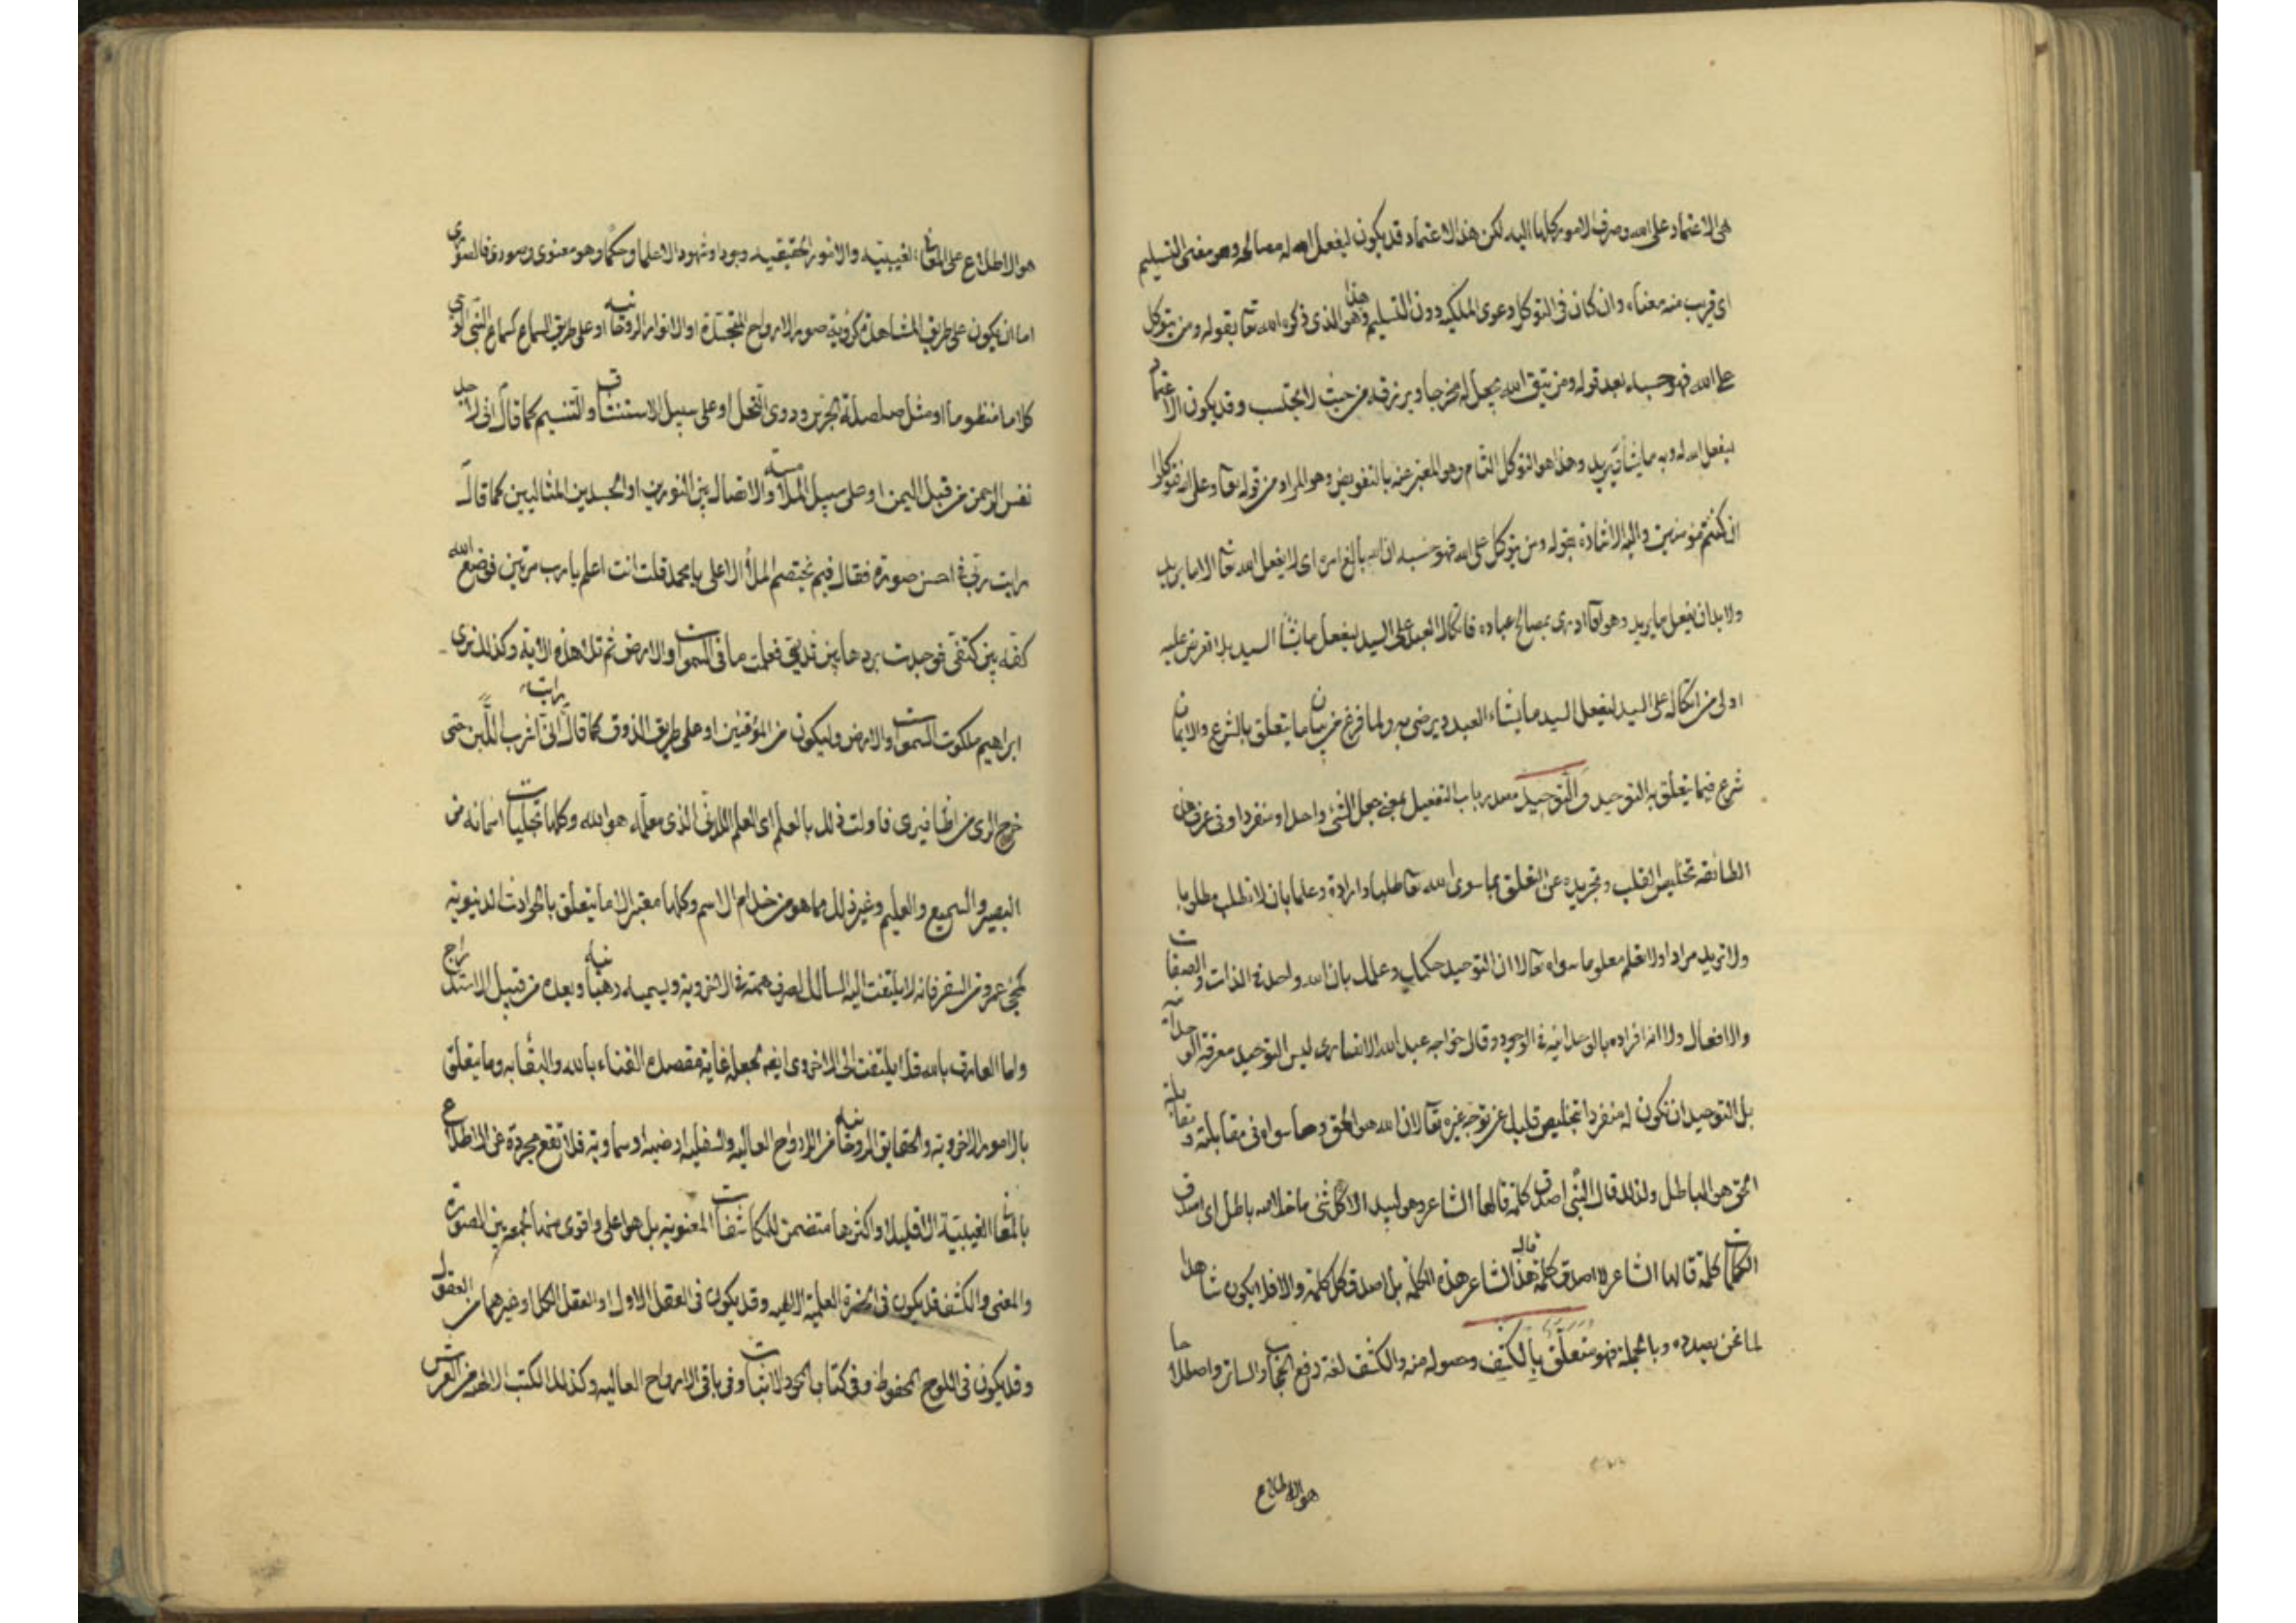 هى الاعتماد على الله وصرف الامور كلها اليه لكن هذا الاعتماد قد يكون ليفعل الله له مصالحه وهو معنى التسليم
اى قريب منه معناه وان كان فى التوكل دعوى الملكيه دون التسليم وهذا هو الذى ذكره الله تعا بقوله ومن يتوكل
على الله فهو حسبه بعد قوله ومن يتق الله يجعل له مخرجا ويرزقه من حيث لا يحتسب وقد يكون الاعتماد
ليفعل الله له وبه ما يشاء ويريد وهذا هو التوكل التام وهو المعبر عنه بالتفويض وهو المراد من قوله تعا وعلى الله فتوكلوا
ان كنتم مؤمنين واليه الاشارة بقوله ومن يتوكل على الله فهو حسبه ان الله بالغ امره اى لا يفعل الله تعا الا ما يريد
ولا بد ان يفعل ما يريد وهو تعا ادرى بمصالح عباده فاتكال العبد على السيد ليفعل ما يشاء السيد بلا تعرض عليه
اولى من اتكاله على السيد ليفعل السيد ما يشاء العبد ويرضى به ولما فرغ من بيان ما يتعلق بالشرع والايمان
شرع فيما يتعلق بالتوحيد والتوحيد مصدر باب التفعيل بمعنى جعل الشئ واحدا ومنفردا وفى عرف هذه
الطائفه تخليص القلب وتجريده عن التعلق بما سوى الله تعا طلبا وارادة وعلما بان لا تطلب مطلوبا
ولا تريد مرادا ولا تعلم معلوما سواه تعا لا ان التوحيد حكمك وعلمك بان الله واحد فى الذات والصفات
والافعال ولا انه افراده بالوحدانيه فى الوجود وقال خواجه عبد الله الانصارى ليس التوحيد معرفة الوحدانية
بل التوحيد ان تكون له منفردا بتخليص قلبك عن توجه غيره تعا لان الله هو الحق وما سواه فى مقابلته ومقابلة
الحق هو الباطل ولذلك قال النبى اصدق كلمة قالها الشاعر وهو لبيد الا كل شئ ما خلا الله باطل اى اصدق
الكلمات كلمة قالها الشاعر لا اصدق كلمة قال هذا الشاعر هذه الكلمة بل اصدق كل كلمة والا فلا يكون شاهدا
لما نحن بصدده وبالجملة فهو متعلق بالكشف وحصوله منه والكشف لغة رفع الحجاب والساتر واصطلاحا
هو الاطلاع
هو الاطلاع على المعانى الغيبيه والامور الحقيقيه وجودا وشهودا لا علما وحكما وهو معنوى وصورى فالصورى
اما ان يكون على طريق المشاهدة كرؤية صور الارواح المتجسدة او الانوار الروحانيه او على طريق السماع كسماع النبى الوحى
كلاما منظوما او مثل صلصلة الجرس ودوى النحل او على سبيل الاستنشاق والتنسيم كما قال انى لاجد
نفس الرحمن من قبل اليمن او على سبيل الملامسة والاتصال بين النورين او الجسدين المثاليين كما قال
رايت ربى فى احسن صورة فقال فيم يختصم الملأ الاعلى يا محمد قلت انت اعلم يا رب مرتين فوضع الله
كفه بين كتفى فوجدت بردها بين ثديى فعلمت ما فى السموات والارض ثم تلا هذه الاية وكذلك نرى
ابراهيم ملكوت السموات والارض وليكون من الموقنين او على طريق الذوق كما قال رايت انى اشرب اللبن حتى
خرج الرى من اظافيرى فاولت ذلك بالعلم اى العلم اللدنى الذى معلمه هو الله وكلها تجليات اسمائه من
البصير والسميع والعليم وغير ذلك مما هو من خدام الاسم وكلها معتبر الا ما يتعلق بالحوادث الدنيويه
كمجئ عمرو من السفر فانه لا يلتفت اليه السالك لصرف همته فى الاخرويه ويسميه رهبانيه وبعده من قبيل الاستدراج
واما العارف بالله فلا يلتفت الى الاخروى ايضا بجعله غاية مقصده الفناء بالله والبقا به وما يتعلق
بالامور الاخرويه والحقايق الروحانيه من الارواح العاليه والسفليه ارضيه او سماويه فلا تقع مجردة عن الاطلاع
بالمعانى الغيبية الا قليلا واكثرها متضمن للمكاشفات المعنويه بل هو اعلى واقوى منها لجمعه بين الصورة
والمعنى والكشف قد يكون فى الحضرة العلمية الالهيه وقد يكون فى العقل الاول او العقل الكل او غيرهما من العقول
وقد يكون فى اللوح المحفوظ وفى كتاب المحو والاثبات وفى باقى الارواح العاليه وكذلك الكتب الالهيه من العرش